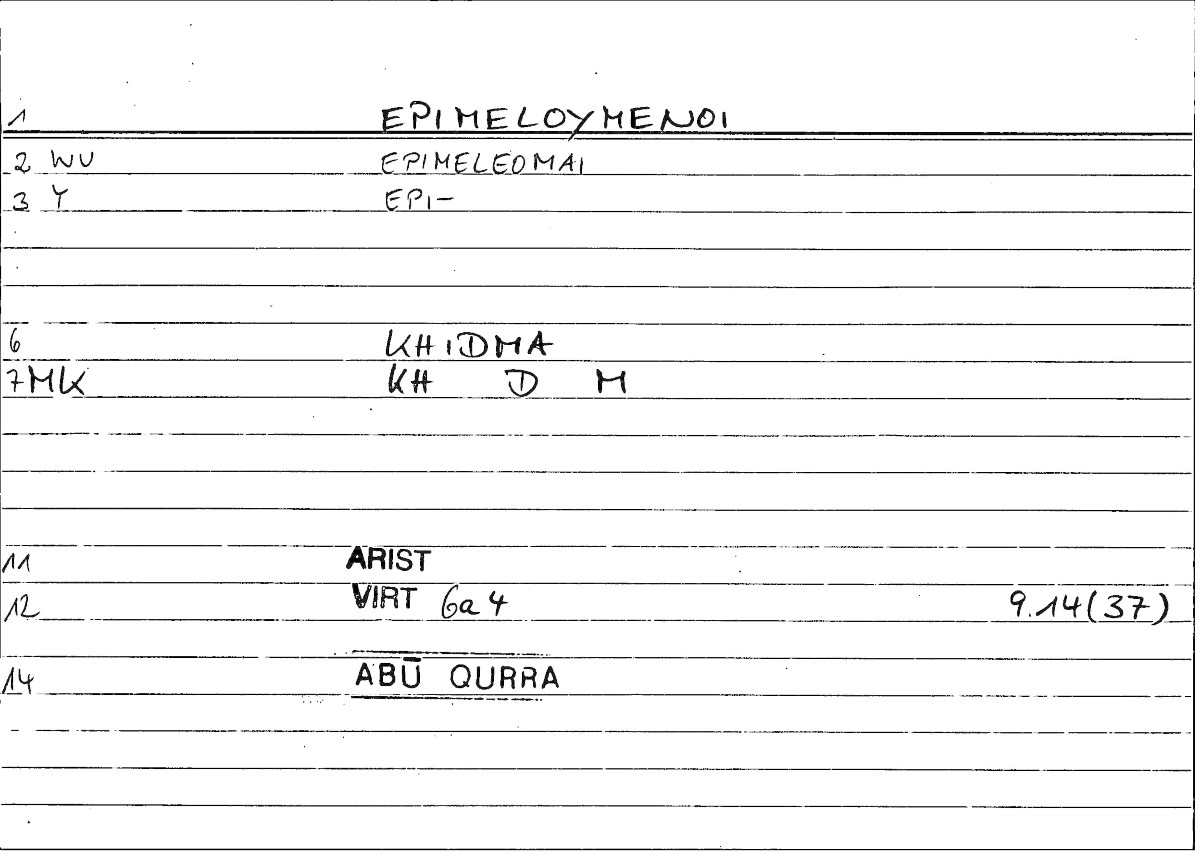 1 EPIMELOYMENOI
2 WU EPIMELEOMAI
3 Y EPI-
6 KHIDMA
7MK KH D M
11 ARIST
12 VIRT 6a4 9.14(37)
14 ABŪ QURRA